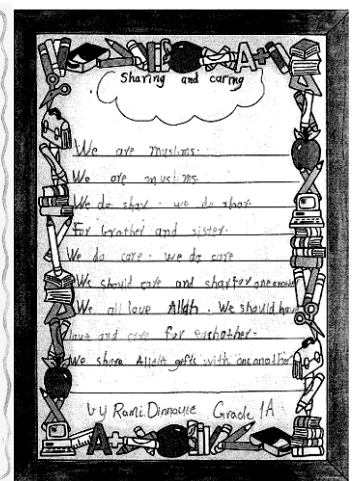 Sharing and caring
We are muslims.
We are muslims
We do shar. we do shar.
For brother and sister.
We do care. we do care
We should care and shar for one another
We all love Allah. We should have
love and care for eachother.
We share Allah gifts with one another
by Rami Grade 1A
A+
A+